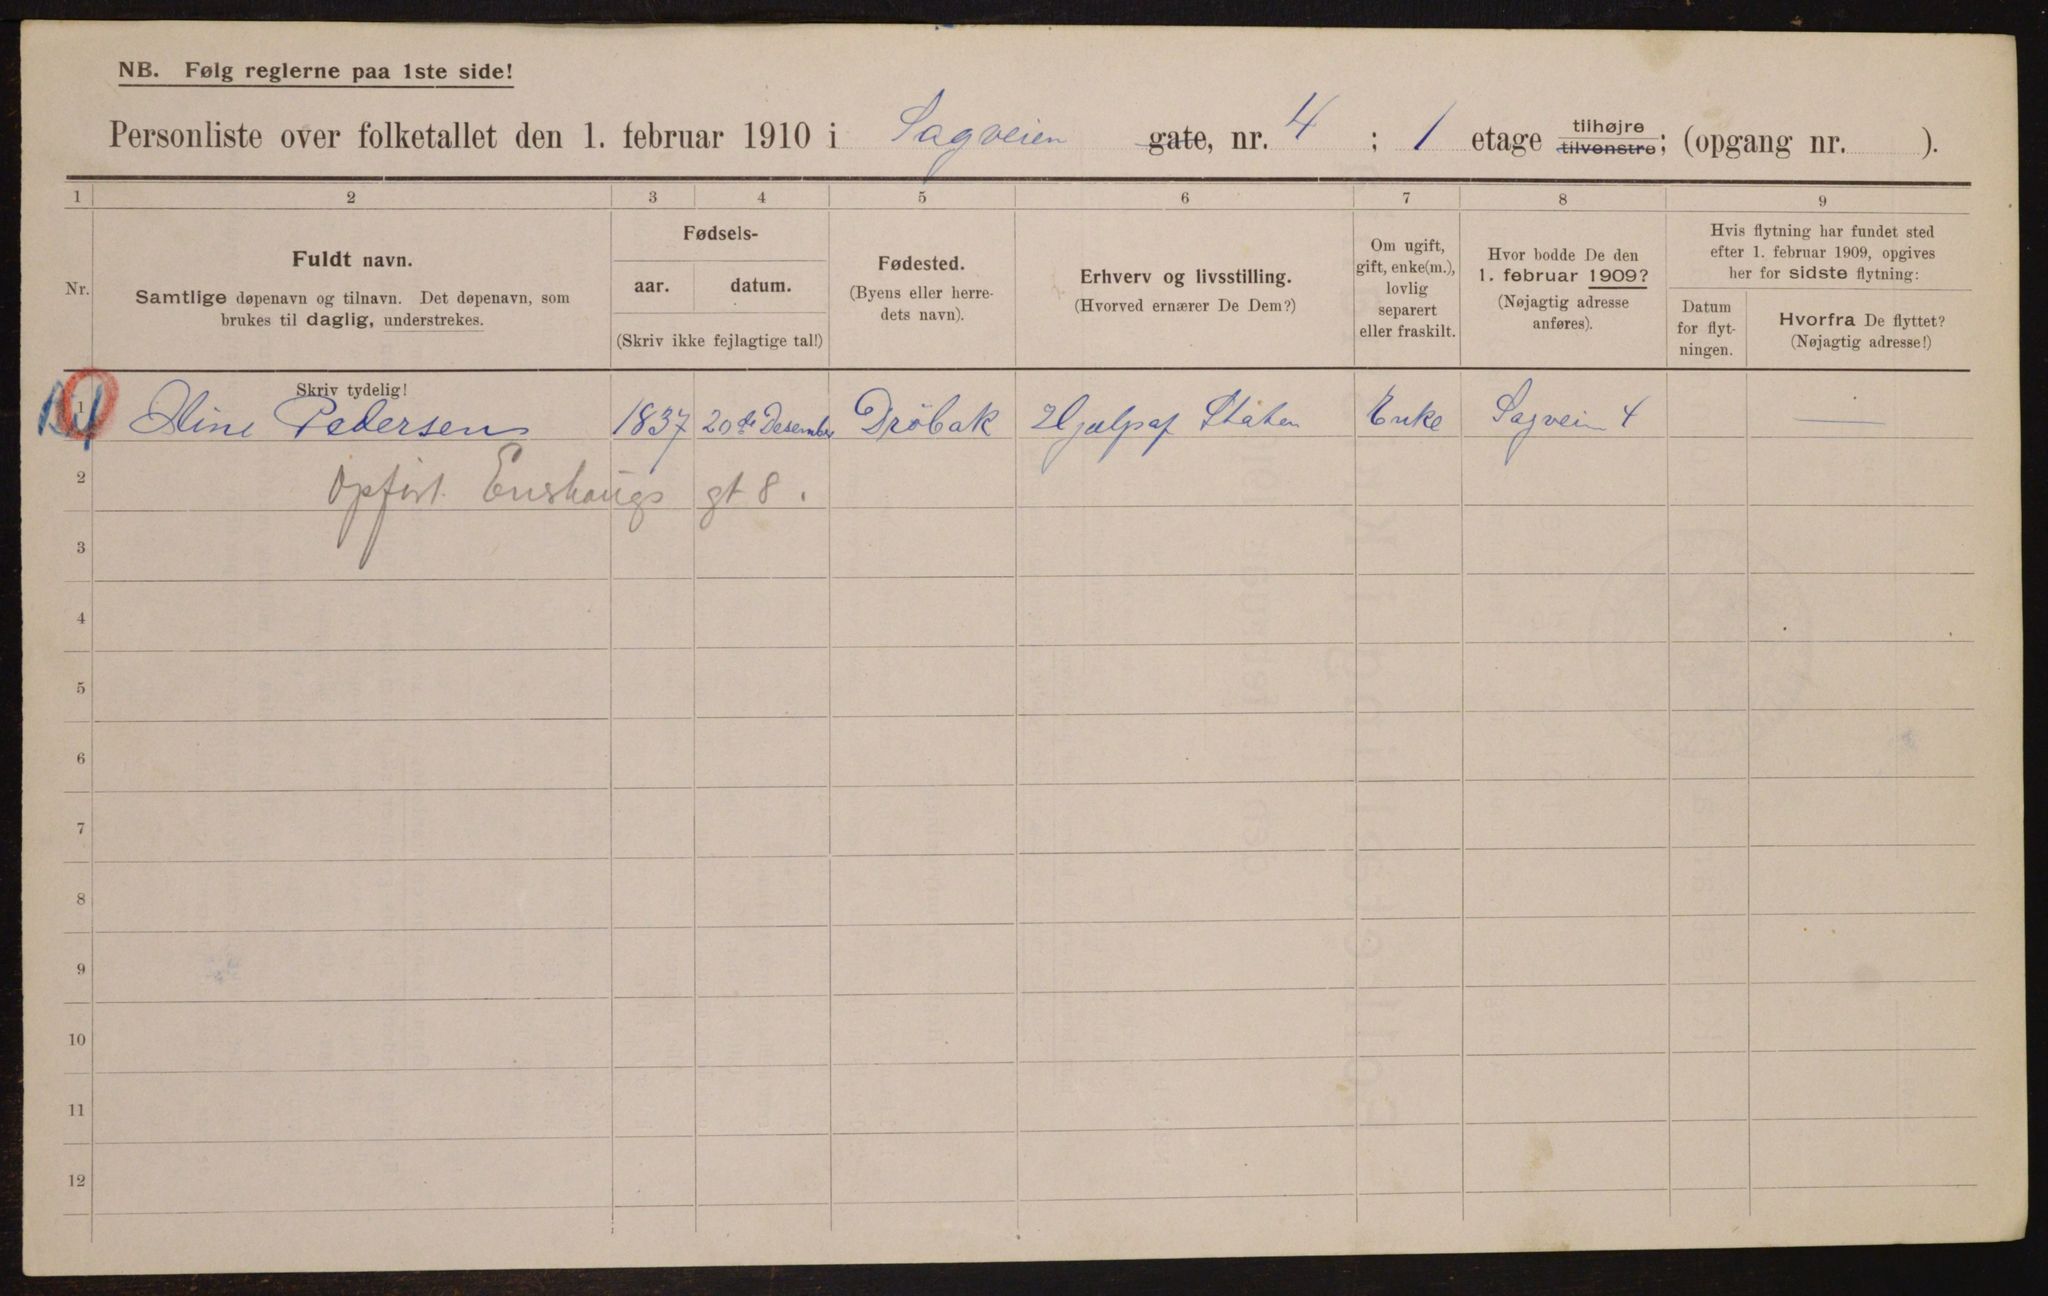 NB. Følg reglerne paa 1ste side!
Personliste over folketallet den 1. februar 1910 i Sagveien gate, nr. 4 ; 1 etage tilhøjre tilvenstre; (opgang nr. ).
1 2 3 4 5 6 7 8 9
Nr.
Fuldt navn.
Samtlige døpenavn og tilnavn. Det døpenavn, som
brukes til daglig, understrekes.
Skriv tydelig!
Fødsels-
aar. datum.
(Skriv ikke fejlagtige tal!)
Fødested.
(Byens eller herre-
dets navn).
Erhverv og livsstilling.
(Hvorved ernærer De Dem?)
Om ugift,
gift, enke(m.),
lovlig
separert
eller fraskilt.
Hvor bodde De den
1. februar 1909?
(Nøjagtig adresse
anføres).
Hvis flytning har fundet sted
efter 1. februar 1909, opgives
her for sidste flytning:
Datum
for flyt-
ningen.
Hvorfra De flyttet?
(Nøjagtig adresse!)
1 Oline Pedersen 1837 20de Desember Dröbak Hjælp af Staten Enke Sagvein 4 —
2 Opført Enshaugs gt 8.
3
4
5
6
7
8
9
10
11
12